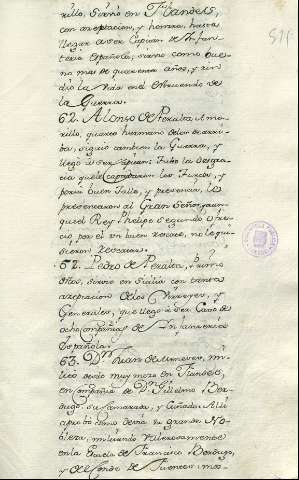 rillo, sirvió en Flandes,
con azeptacion, y honrra, hasta
llegar a ser Capitan de Infan-
teria Española, sirvio como bue-
no mas de quarenta años, y rin-
dió la vida en el
la Guerra.
62. Alonso de Peralta Amo-
rillo, quarto hermano de los de arri-
ba, siguio tambien la Guerra, y
llegó a ser Capitan: Tubo la desgra-
cia que le cogieron los Turcos, y
por su buen Talle, y presencia, lo
presentaron al Gran Señor, y aun
que el Rey Phelipe segundo ofre-
cio por el un buen rescate, no le qui-
sieron rescatar.
62. Pedro de Peralta,
sirvio en Sicilia con tanta
azeptacion de los Virreyes, y
Generales, que llegó a ser Cavo de
ocho compañias de Infanteria
Española.
63. Dn. Juan de Meneses, mi-
litó desde muy mozo en Flandes,
en compañia de Dn. Gillelmo
su Camarada, y Cuñado. Alli
aprobó como devia su grande No-
bleza, militando valerosamente
en la Escuela de Francisco Berdugo,
y del Conde de Fuentes, mos-